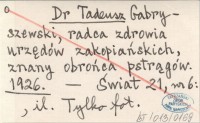 Dr Tadeusz Gabry-
szewski, radca zdrowia
urzędów zakopiańskich,
znany obrońca pstrągów.
1926. — Świat 21, nr 6:
, il. Tylko fot.